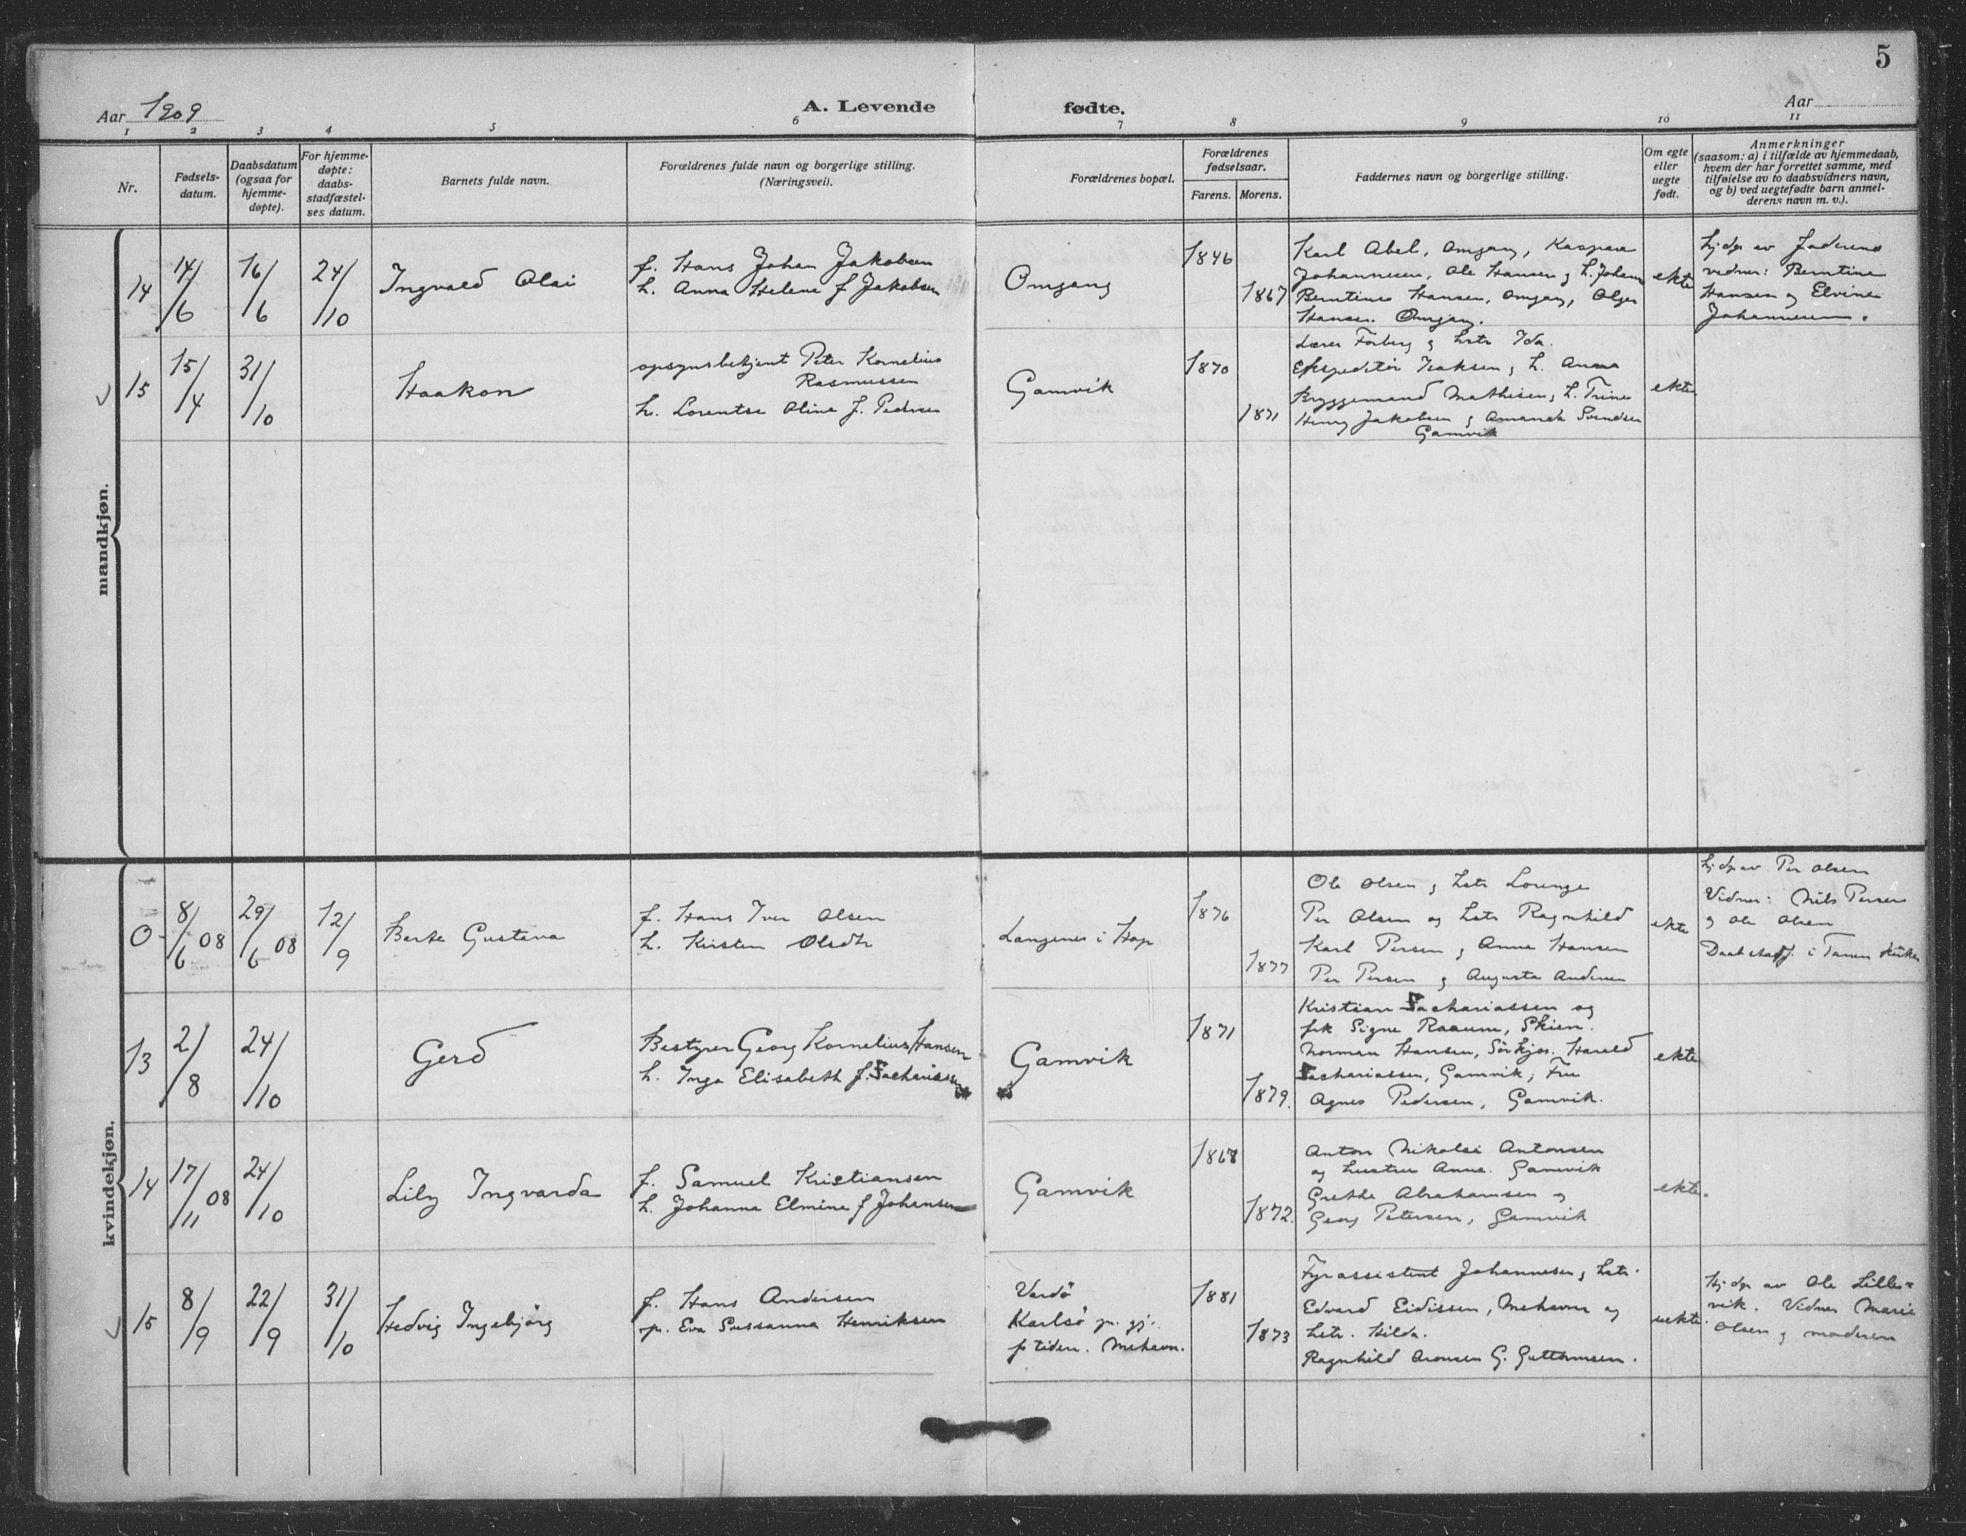 5
Aar 1909
A. Levende fødte.
Aar
1 2 3 4 5 6 7 8 9 10 11
Nr.
Fødsels-
datum.
Daabsdatum
(ogsaa for
hjemme-
døpte).
For hjemme-
døpte:
daabs-
stadfæstel-
ses datum.
Barnets fulde navn.
Forældrenes fulde navn og borgerlige stilling.
(Næringsvei).
Forældrenes bopæl.
Forældrenes
fødselsaar.
Farens. Morens.
Faddernes navn og borgerlige stilling.
Om egte
eller
uegte
født.
Anmerkninger
(saasom: a) i tilfælde av hjemmedaab,
hvem der har forrettet samme, med
tilføielse av to daabsvidners navn,
og b) ved uegtefødte barn anmel-
derens navn m. v.).
mandkjøn.
14
14/6
16/6
24/10
Ingvald Olai
f. Hans Johan Jakobsen
h. Anna Helene f Jakobsen
Omgang
1846
1867
Karl Abel, Omgang, Kaspara
Johannesen, Ole Hansen g h. Johanna
Berntine Hansen, Omgang, Olger
Hansen. Omgang.
ekte
hjdp av Faderen
vidner: Berntine
Hansen og Elvine
Johannesen.
15
15/4
31/10
Haakon
opsynsbetjent Peter Kornelius
Rasmussen
h. Lorentse Oline f. Pedersen
Gamvik
1870
1871
Lærer Forberg g hstr Ida.
Ekspeditør Isaksen g h. Anna
Bryggemand Mathisen g h. Trine
Henry Jakobsen g Amanda Svendsen
Gamvik
ekte
kvindekjøn.
0
8/6 08
29/6 08
12/9
Berte Gustava
f. Hans Iver Olsen
h. Kirsten Olsdtr
Langenes i Hop
1876
1877
Ole Olsen g hstr Lorense
Per Olsen og hstr Ragnhild
Karl Persen g Anna Hansen
Per Persen g Augusta Andersen
ekte
hjdp av Per Olsen
Vidner: Nils Persen
g Ole Olsen
Daab stadf. i Tanen kirke
13
2/8
24/10
Gerd
Bestyrer Georg Kornelius Hansen
h. Inga Elisabeth f. Sachariassen
Gamvik
1871
1879.
Kristian Sachariassen og
frk Signe Raaum, Skien.
Norman Hansen, Sörkjos. Harald
Sachariassen, Gamvik, Fru
Agnes Pedersen, Gamvik.
ekte
14
17/11 08
24/10
Lily Ingvarda
f. Samuel Kristiansen
h. Johanna Elmine f Johansen
Gamvik
1868
1872.
Anton Nikolai Antonsen
og hustru Anna. Gamvik
Grethe Abrahamsen g
Georg Petersen, Gamvik
ekte.
15
8/9
22/9
31/10
Hedvig Ingebjörg
f. Hans Andersen
p. Eva Sussanna Henriksen
Vardö
Karlsö pr. gj.
p tiden. Mehavn.
1881
1873
Fyrassistent Johannesen g hstr.
Edvard Eidissen, Mehavn og
hstr. Hilda.
Ragnhild Aronsen G. Guttormsen.
uekte
Hjdp av Ole Lille-
vik. Vidner Marie
Olsen g moderen